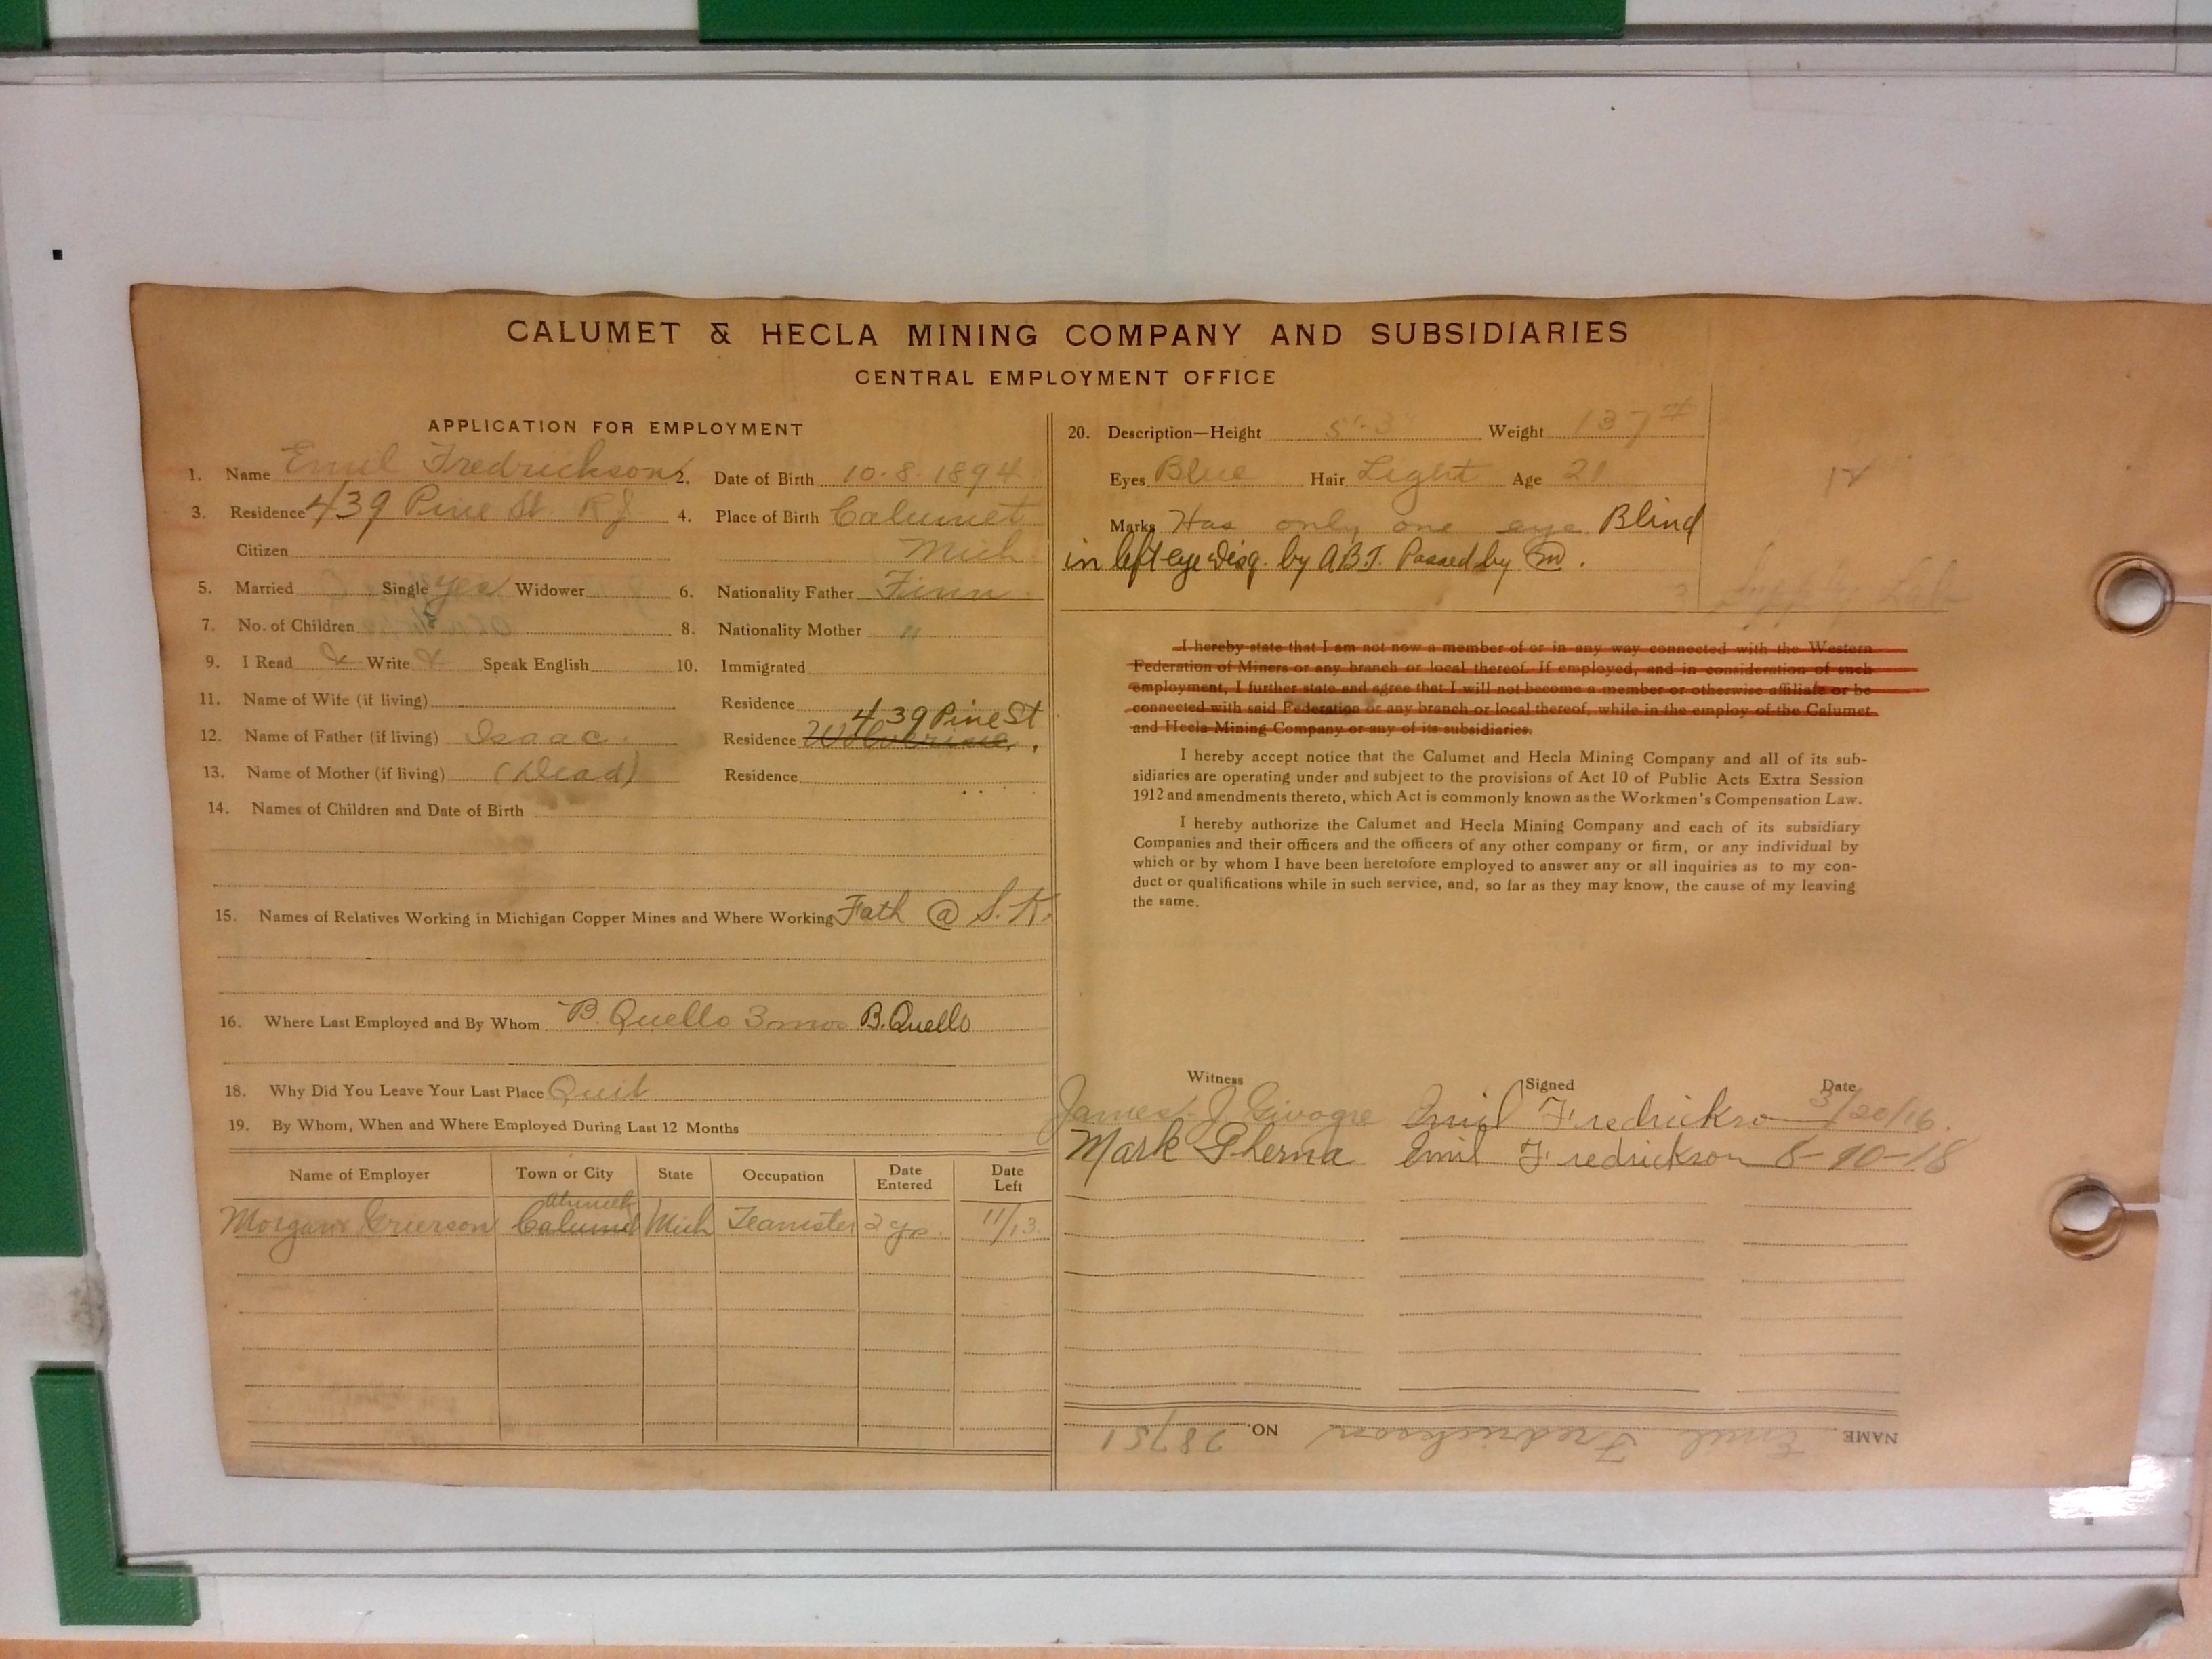 CALUMET & HECLA MINING COMPANY AND SUBSIDIARIES
CENTRAL EMPLOYMENT OFFICE
APPLICATION FOR EMPLOYMENT
1. Name Emil Fredrickson 2. Date of Birth 10-8-1894
3. Residence 439 Pine St. RJ 4. Place of Birth Calumet
Citizen Mich
5. Married Single yes Widower 6. Nationality Father Finn
7. No. of Children 8. Nationality Mother "
9. I Read Write Speak English 10. Immigrated
11. Name of Wife (if living) Residence
439 Pine St
12. Name of Father (if living) Isaac Residence Wolverine
13. Name of Mother (if living) (Dead) Residence
14. Names of Children and Date of Birth
15. Names of Relatives Working in Michigan Copper Mines and Where Working Fath @ S. K.
16. Where Last Employed and By Whom B. Quello 3 mos B. Quello
18. Why Did You Leave Your Last Place Quit
19. By Whom, When and Where Employed During Last 12 Months
Name of Employer Town or City State Occupation Date Entered Date Left
Ahmeek
Morgan Grierson Calumet Mich Teamster 2 yrs. 11/13
20. Description—Height 5'-3 Weight 137#
Eyes Blue Hair Light Age 21
Marks Has only one eye Blind
in left eye Disq. by A.B.J. Passed by
I hereby state that I am not now a member of or in any way connected with the Western
Federation of Miners or any branch or local thereof. If employed, and in consideration of such
employment, I further state and agree that I will not become a member or otherwise affiliate or be
connected with said Federation or any branch or local thereof, while in the employ of the Calumet
and Hecla Mining Company or any of its subsidiaries.
I hereby accept notice that the Calumet and Hecla Mining Company and all of its sub-
sidiaries are operating under and subject to the provisions of Act 10 of Public Acts Extra Session
1912 and amendments thereto, which Act is commonly known as the Workmen's Compensation Law.
I hereby authorize the Calumet and Hecla Mining Company and each of its subsidiary
Companies and their officers and the officers of any other company or firm, or any individual by
which or by whom I have been heretofore employed to answer any or all inquiries as to my con-
duct or qualifications while in such service, and, so far as they may know, the cause of my leaving
the same.
Witness Signed Date
James J. Emil Fredrickson 3/20/16.
Mark Emil Fredrickson 8-10-18
NAME Emil Fredrickson NO. 28751